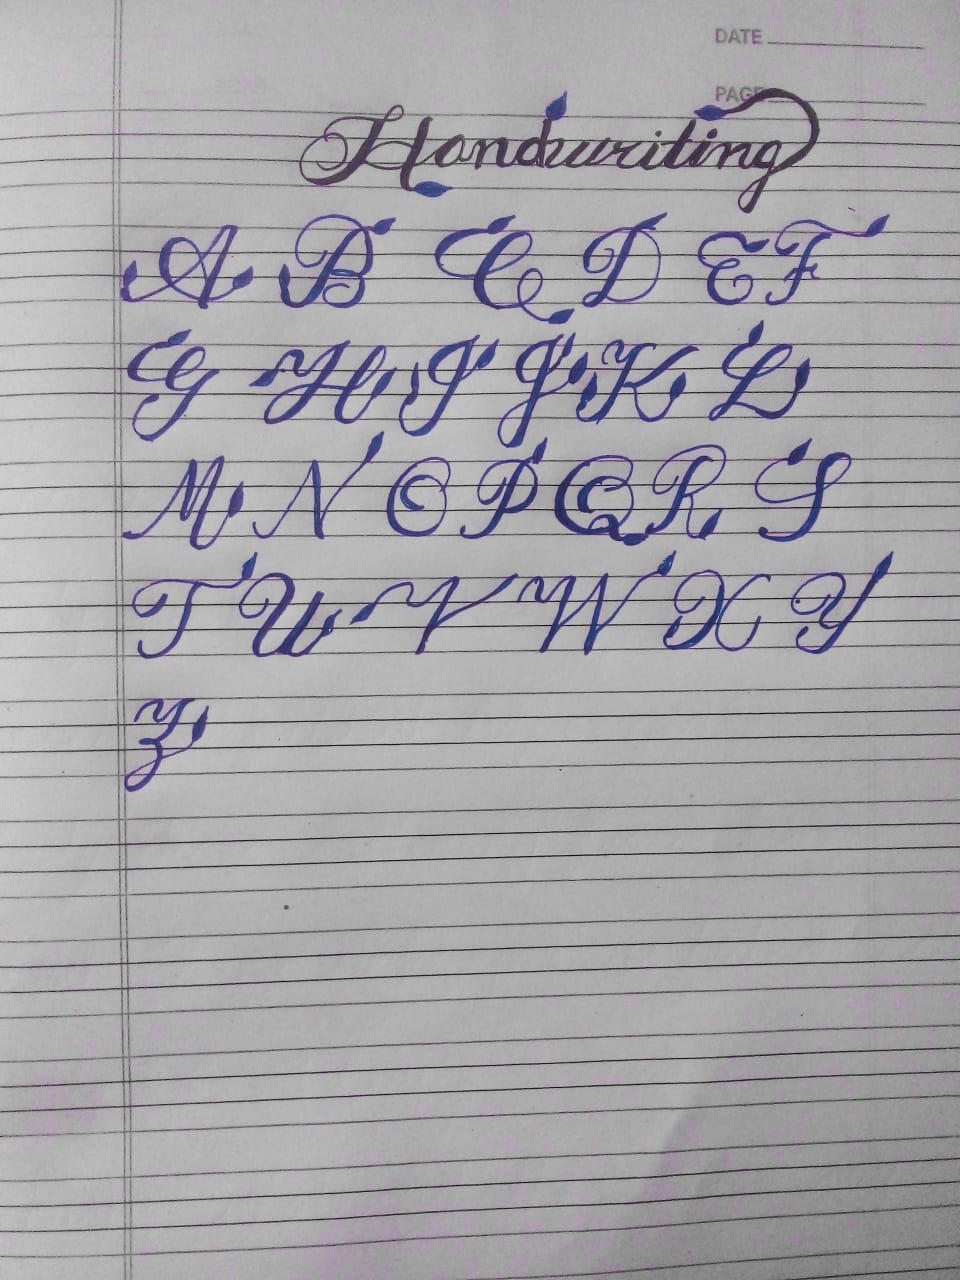 DATE
PAGE
Handwriting
A B C D E F
G H I J K L
M N O P Q R S
T U V W X Y
Z